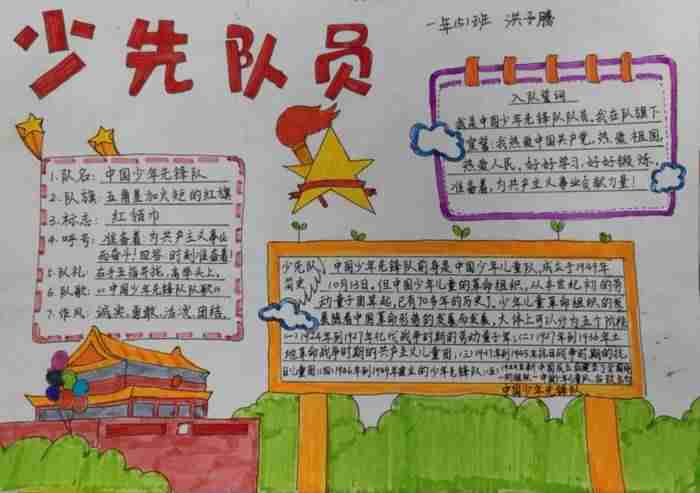 少先队员
一年(5)班 洪子腾
入队誓词
我是中国少年先锋队队员,我在队旗下
宣誓:我热爱中国共产党,热爱祖国,
热爱人民,好好学习,好好锻炼,
准备着,为共产主义事业贡献力量!
1.队名:中国少年先锋队
2.队旗:五角星加火炬的红旗
3.标志:红领巾
4.呼号:准备着,为共产主义事业
而奋斗!回答:时刻准备着!
5.队礼:右手五指并拢,高举头上,
6.队歌:《中国少年先锋队队歌》
7.作风:诚实,勇敢,活泼,团结。
少先队
简史
中国少年先锋队前身是中国少年儿童队,成立于1949年
10月13日,但中国少年儿童的革命组织,从
动童子团算起,已有70多年的历史了,少年儿童组织的发
展随着中国革命形势的发展而发展,大体上可以分为五个阶段
(一)1924年到1927年
时期的劳动童子军;(二)1927年到1936年土
地革命战争时期的共产主义儿童团;(三)1937年到1945年抗日战争时期的抗
日儿童团;(四)1946年到1949年建立的少年先锋队;(五)
中国少年先锋队